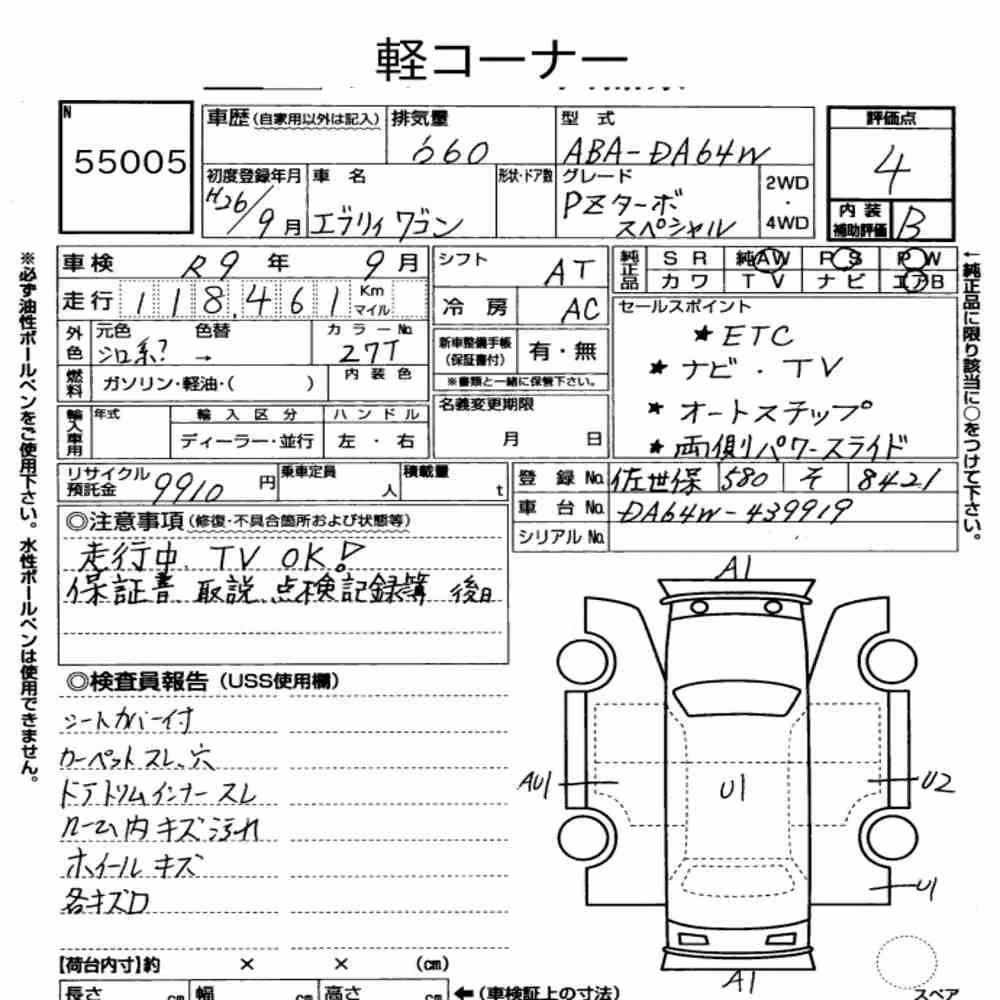 軽コーナー
N
55005
車歴 (自家用以外は記入)
排気量
660
型式
ABA-DA64W
評価点
4
初度登録年月
H26/9月
車名
エブリィワゴン
形状・ドア数
グレード
PZターボ
スペシャル
2WD
・
4WD
内装
補助評価
B
車検
R9年 9月
シフト
AT
純正品
SR 純AW PS PW
カワ TV ナビ エアB
走行
118,461
Km
マイル
冷房
AC
セールスポイント
★ ETC
★ ナビ・TV
★ オートステップ
★ 両側パワースライド
外色
元色
シロ系?
色替
→
カラーNo.
27T
新車整備手帳
(保証書付)
有・無
※書類と一緒に保管下さい。
燃料
ガソリン・軽油・( )
内装色
名義変更期限
月 日
輸入車用
年式
輸入区分
ハンドル
ディーラー・並行
左・右
リサイクル
預託金
9910円
乗車定員
人
積載量
t
登録No.
佐世保 580 そ 8421
車台No.
DA64W-439919
シリアルNo.
◎注意事項 (修復・不具合箇所および状態等)
走行中、TV OK!
保証書、取説、点検記録簿 後日
◎検査員報告 (USS使用欄)
シートカバー付
カーペットスレ、穴
ドアトリムインナースレ
ルーム内キズ汚れ
ホイールキズ
各キズロ
A1
AU1
U1
U2
U1
A1
【荷台内寸】約 × × (cm)
長さ cm 幅 cm 高さ cm
←(車検証上の寸法)
スペア
※必ず油性ボールペンをご使用下さい。水性ボールペンは使用できません。
←純正品に限り該当に○をつけて下さい。